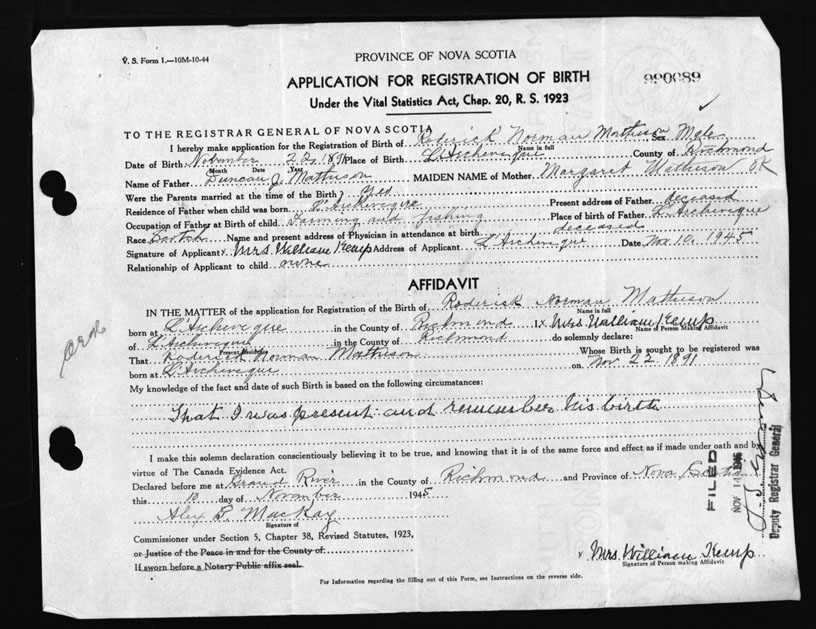 V. S. Form 1.—10M-10-44
PROVINCE OF NOVA SCOTIA
APPLICATION FOR REGISTRATION OF BIRTH
990089
Under the Vital Statistics Act, Chap. 20, R. S. 1923
TO THE REGISTRAR GENERAL OF NOVA SCOTIA
I hereby make application for the Registration of Birth of Roderick Norman Matheson Sex Male
Name in full
Date of Birth November 22, 1891 Place of Birth L'Archeveque County of Richmond
Month Date Year
Name of Father Duncan J. Matheson MAIDEN NAME of Mother Margaret Matheson OK
Were the Parents married at the time of the Birth? Yes
Residence of Father when child was born L'Archeveque Present address of Father deceased
Occupation of Father at Birth of child Farming and fishing Place of birth of Father L'Archeveque
Race Scotch Name and present address of Physician in attendance at birth deceased
Signature of Applicant x Mrs William Kemp Address of Applicant L'Archeveque Date Nov 10, 1945
Relationship of Applicant to child none
AFFIDAVIT
IN THE MATTER of the application for Registration of the Birth of Roderick Norman Matheson
Name in full
born at L'Archeveque in the County of Richmond I x Mrs William Kemp
Name of Person Making Affidavit
of L'Archeveque in the County of Richmond do solemnly declare:
Present Residence
That Roderick Norman Matheson Whose Birth is sought to be registered was
born at L'Archeveque on Nov 22 1891
My knowledge of the fact and date of such Birth is based on the following circumstances:
That I was present and remember his birth
I make this solemn declaration conscientiously believing it to be true, and knowing that it is of the same force and effect as if made under oath and by
virtue of The Canada Evidence Act.
Declared before me at Grand River in the County of Richmond and Province of Nova Scotia
this 10 day of November 1945
Alex B. MacKay
Signature of
Commissioner under Section 5, Chapter 38, Revised Statutes, 1923,
or Justice of the Peace in and for the County of
If sworn before a Notary Public affix seal.
x Mrs. William Kemp
Signature of Person making Affidavit
For Information regarding the filling out of this Form, see Instructions on the reverse side.
FILED
NOV 14 1945
Deputy Registrar General